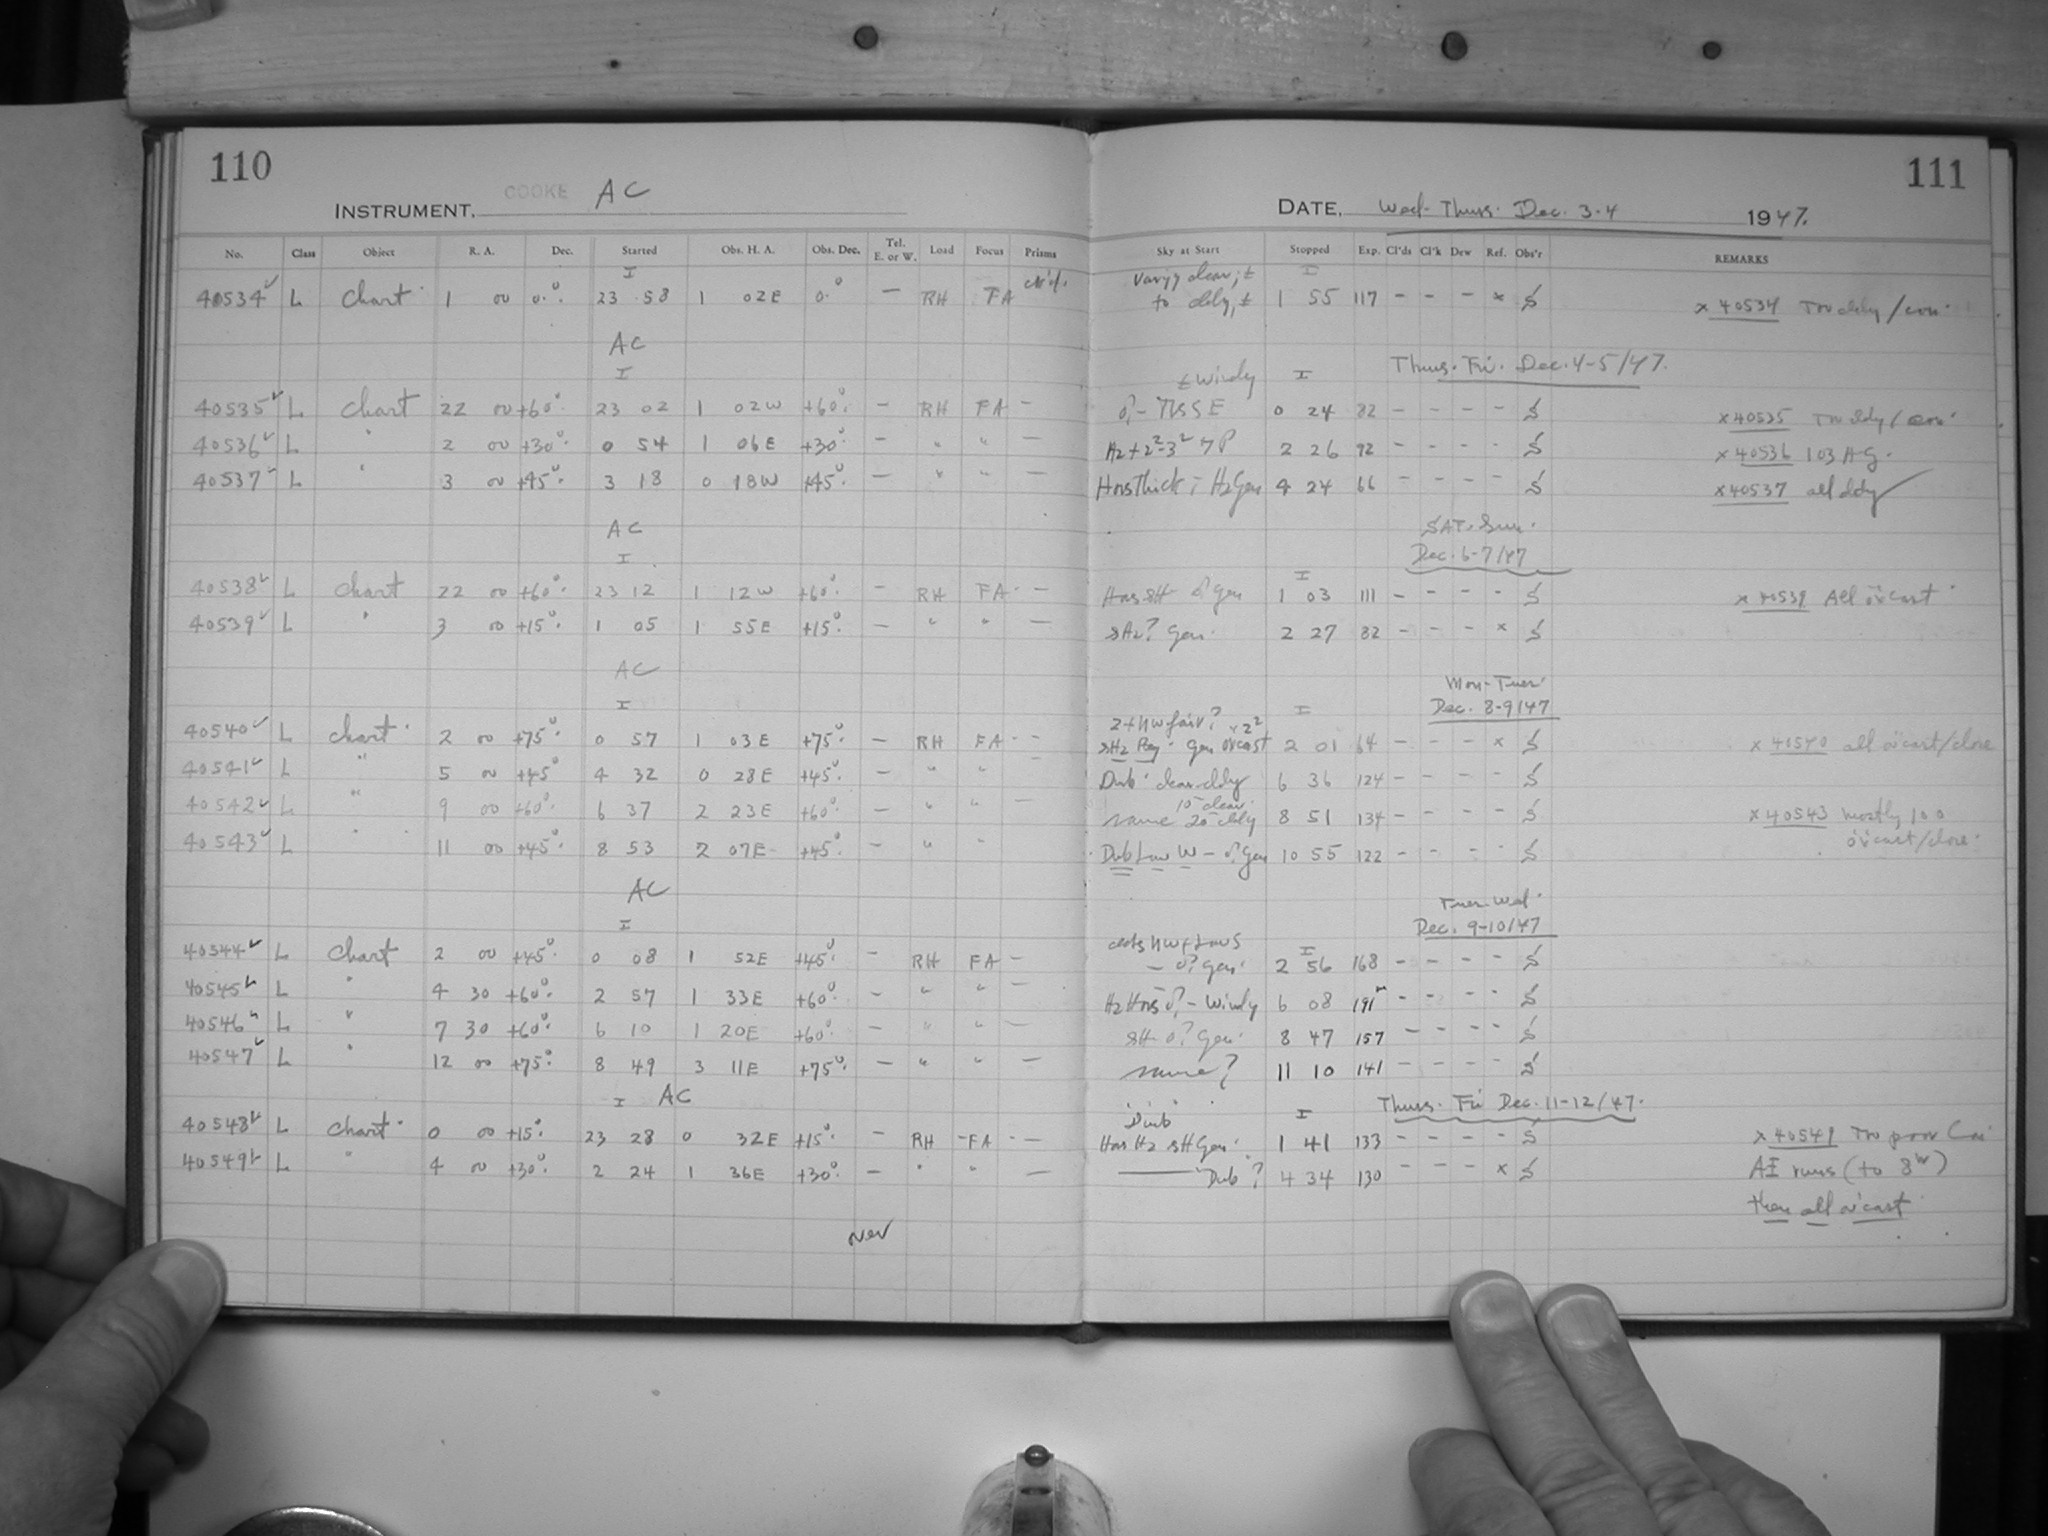 110
INSTRUMENT, COOKE AC
No. Class Object R. A. Dec. Started Obs. H. A. Obs. Dec. Tel. E. or W. Load Focus Prisms
I
40534 L Chart 1 00 0° 23 58 1 02E 0° — RH FA
AC
I
40535 L Chart 22 00 +60° 23 02 1 02W +60° — RH FA —
40536 L " 2 00 +30° 0 54 1 06E +30° — " " —
40537 L " 3 00 +45° 3 18 0 18W +45° — " " —
AC
I
40538 L Chart 22 00 +60° 23 12 1 12W +60° — RH FA —
40539 L " 3 00 +15° 1 05 1 55E +15° — " " —
AC
I
40540 L Chart 2 00 +75° 0 57 1 03E +75° — RH FA —
40541 L " 5 00 +45° 4 32 0 28E +45° — " " —
40542 L " 9 00 +60° 6 37 2 23E +60° — " " —
40543 L " 11 00 +45° 8 53 2 07E +45° — " "
AC
I
40544 L Chart 2 00 +45° 0 08 1 52E +45° — RH FA —
40545 L " 4 30 +60° 2 57 1 33E +60° — " " —
40546 L " 7 30 +60° 6 10 1 20E +60° — " " —
40547 L " 12 00 +75° 8 49 3 11E +75° — " " —
I AC
40548 L Chart 0 00 +15° 23 28 0 32E +15° — RH FA —
40549 L " 4 00 +30° 2 24 1 36E +30° — " " —
111
DATE, Wed-Thurs. Dec. 3-4 1947.
Sky at Start Stopped Exp. Cl'ds Cl'k Dew Ref. Obs'r REMARKS
I
1 55 117 — — — x S x 40534
Thurs. Fri. Dec. 4-5/47.
Windy I
0 24 82 — — — — S x 40535
2 26 92 — — — — S x 40536 103 AG.
Thick 4 24 66 — — — — S x 40537 all cldy
SAT. Sun.
Dec. 6-7/47
I
Gen 1 03 111 — — — — S x 40539 All o'cast
Gen. 2 27 82 — — — x S
Mon-Tues
Dec. 8-9/47
NW fair? I
Gen 2 01 64 — — — x S x 40540 all o'cast/close
Dub clear-cldy 6 36 124 — — — — S
10 clear
same 20 cldy 8 51 134 — — — — S x 40543 mostly 100
o'cast/close
Dub Low W — Gen 10 55 122 — — — — S
Tues-Wed
Dec. 9-10/47
NW + Low S I
— Gen. 2 56 168 — — — — S
— Windy 6 08 191 — — — — S
Gen. 8 47 157 — — — — S
same? 11 10 141 — — — — S
Thurs. Fri Dec. 11-12/47.
Dub I
Gen. 1 41 133 — — — — S x 40549 Too poor
Dub? 4 34 130 — — — x S AI runs (to 8 )
then all o'cast